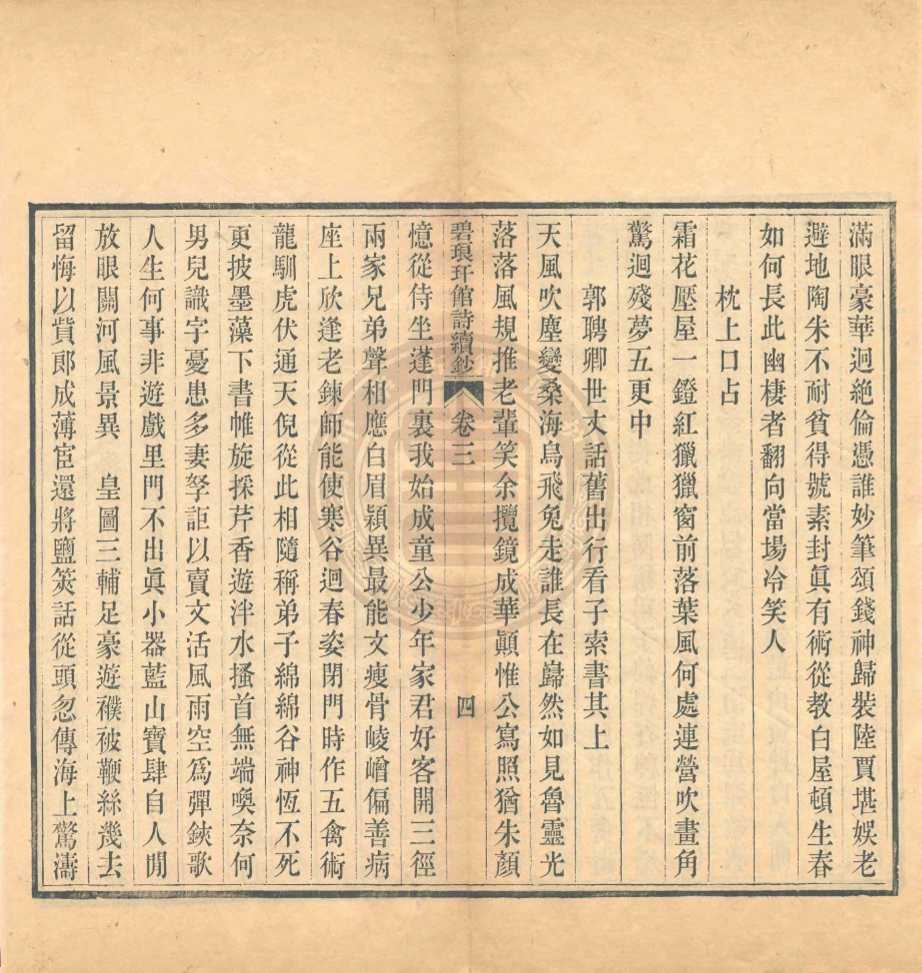 滿眼豪華迥絕倫憑誰妙筆頌錢神歸裝陸賈堪娛老
避地陶朱不耐貧得號素封眞有術從教白屋頓生春
如何長此幽棲者翻向當場冷笑人
枕上口占
霜花壓屋一鐙紅獵獵窗前落葉風何處連營吹畫角
驚迴殘夢五更中
郭聘卿世丈話舊出行看子索書其上
天風吹塵變桑海烏飛兔走誰長在巋然如見魯靈光
落落風規推老輩笑余攬鏡成華顚惟公寫照猶朱顏
碧琅玕館詩續鈔 卷三 四
憶從侍坐蓬門裏我始成童公少年家君好客開三徑
兩家兄弟聲相應白眉穎異最能文瘦骨崚嶒偏善病
座上欣逢老鍊師能使寒谷迴春姿閉門時作五禽術
龍馴虎伏通天倪從此相隨稱弟子綿綿谷神恆不死
更披墨藻下書帷旋採芹香遊泮水搔首無端喚奈何
男兒識字憂患多妻孥詎以賣文活風雨空爲彈鋏歌
人生何事非遊戲里門不出眞小器藍山寶肆自人閒
放眼關河風景異 皇圖三輔足豪遊襆被鞭絲幾去
留悔以貲郎成薄宦還將鹽筴話從頭忽傳海上驚濤